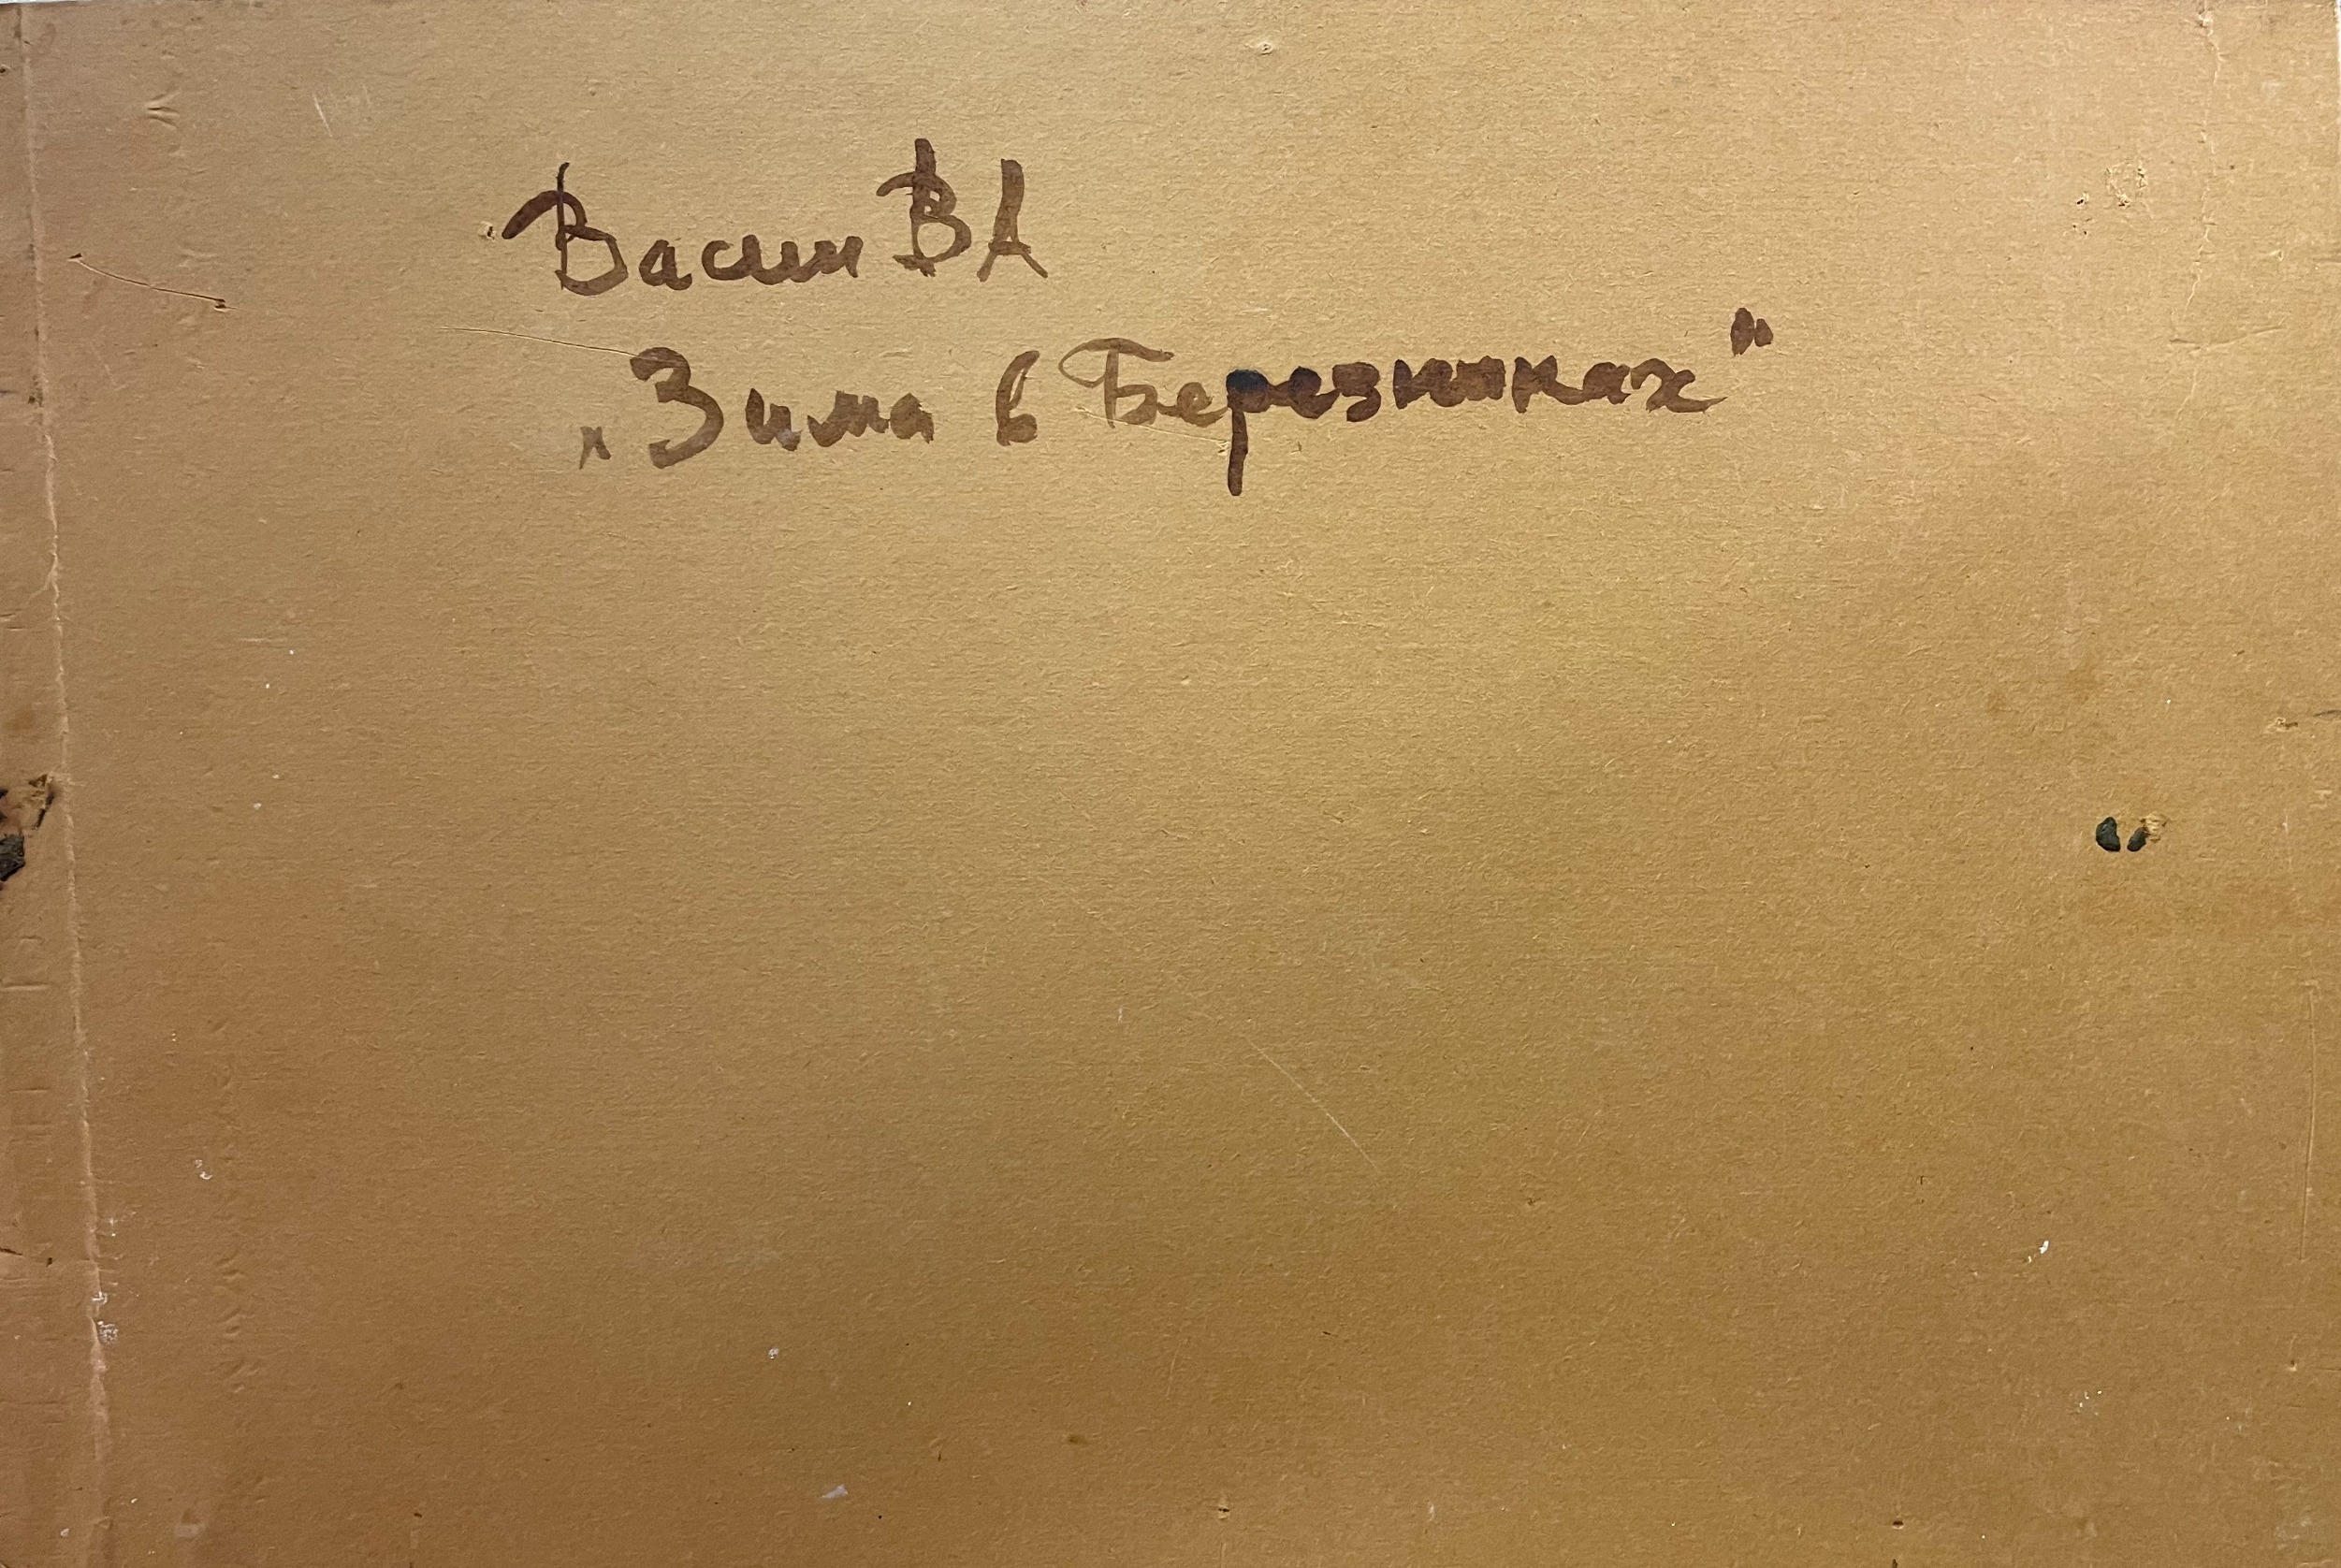 Васин ВА
„Зима в Березниках"